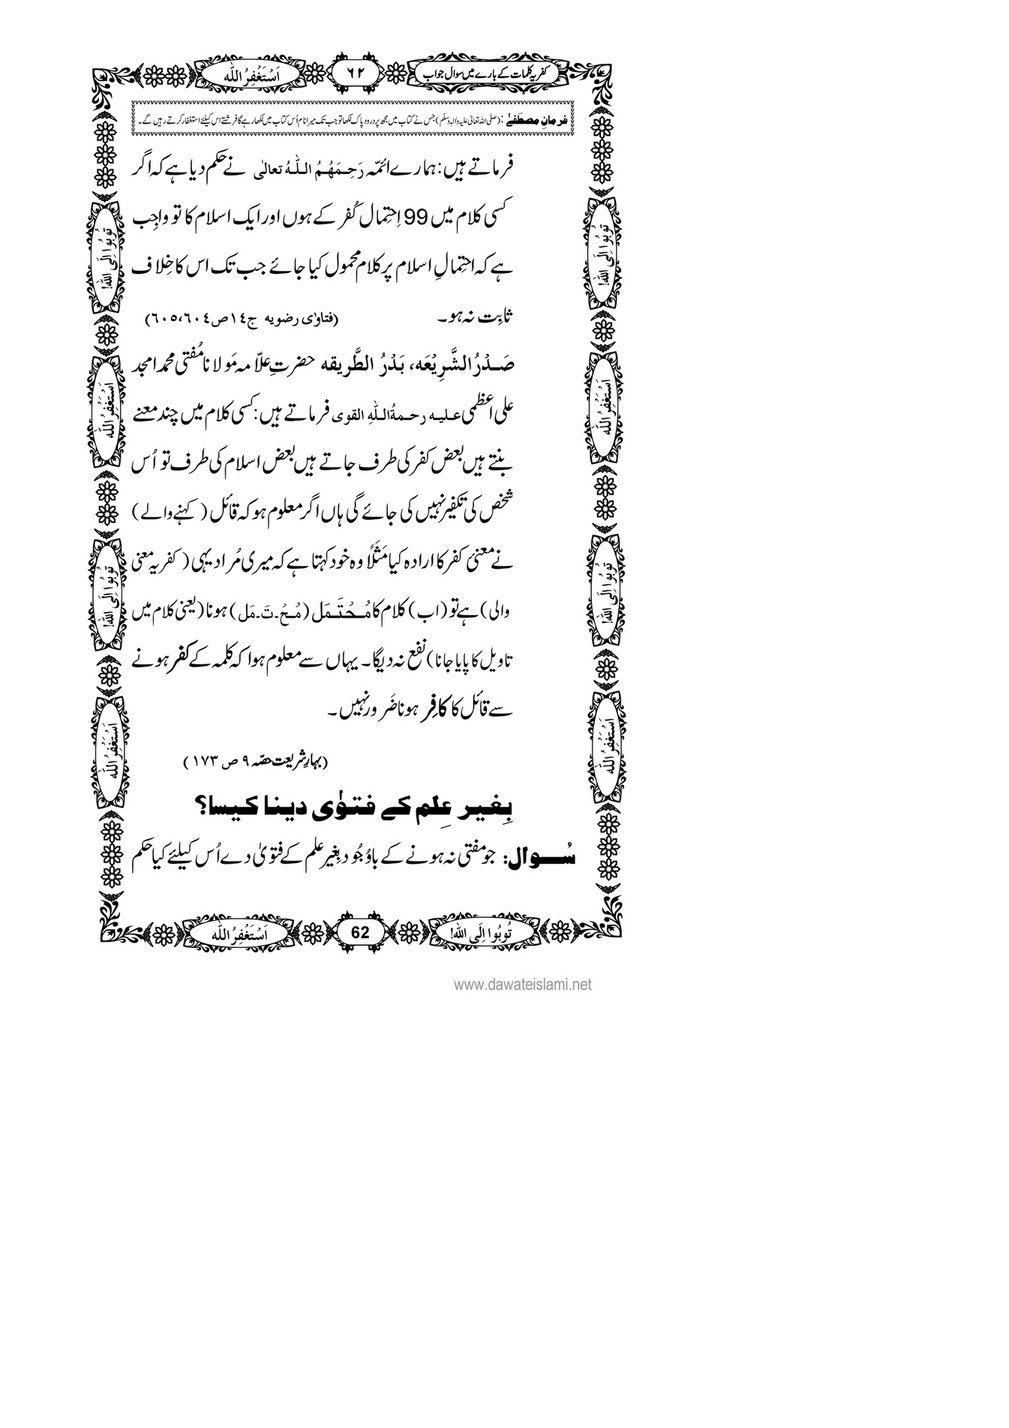 کفریہ کلمات کے بارے میں سوال جواب
٦٢
اَسْتَغْفِرُ اللّٰه
فرمانِ مصطفےٰ: (صلی اللہ تعالیٰ علیہ والہ وسلّم) جس نے کتاب میں مجھ پر درود پاک لکھا تو جب تک میرا نام اُس کتاب میں لکھا رہے گا فرشتے اس کیلئے استغفار کرتے رہیں گے۔
فرماتے ہیں: ہمارے ائمّہ رَحِمَهُمُ اللّٰهُ تعالٰی نے حکم دیا ہے کہ اگر
کسی کلام میں 99 اِحتِمال کُفر کے ہوں اور ایک اسلام کا تو واجِب
ہے کہ احتِمالِ اسلام پر کلام محمول کیا جائے جب تک اس کا خِلاف
ثابِت نہ ہو۔ (فتاوٰی رضویہ ج١٤ ص ٦٠٤، ٦٠٥)
صَدْرُ الشَّرِیْعَہ، بَدْرُ الطَّریقہ حضرتِ علّامہ مَولانا مُفتی محمد امجد
علی اعظمی علیہ رحمۃُ اللّٰہِ القوی فرماتے ہیں: کسی کلام میں چند معنے
بنتے ہیں بعض کفر کی طرف جاتے ہیں بعض اسلام کی طرف تو اُس
شخص کی تکفیر نہیں کی جائے گی ہاں اگر معلوم ہو کہ قائل (کہنے والے)
نے معنیٔ کفر کا ارادہ کیا مَثَلًا وہ خود کہتا ہے کہ میری مُراد یہی (کفریہ معنی
والی) ہے تو (اب) کلام کا مُحْتَمَل (مُحْ۔تَ۔مَل) ہونا (یعنی کلام میں
تاویل کا پایا جانا) نفع نہ دیگا۔ یہاں سے معلوم ہوا کہ کلمہ کے کفر ہونے
سے قائل کا کافِر ہونا ضَرور نہیں۔
(بہارِ شریعت حصّہ ۹ ص ۱۷۳)
بِغیر عِلم کے فتوٰی دینا کیسا؟
سُوال: جو مفتی نہ ہونے کے باوُجُود بِغیر علم کے فتویٰ دے اُس کیلئے کیا حکم
تُوبُوا اِلَی اللّٰه!
اَسْتَغْفِرُ اللّٰه
تُوبُوا اِلَی اللّٰه!
اَسْتَغْفِرُ اللّٰه
تُوبُوا اِلَی اللّٰه!
اَسْتَغْفِرُ اللّٰه
تُوبُوا اِلَی اللّٰه!
اَسْتَغْفِرُ اللّٰه
تُوبُوا اِلَی اللّٰه!
62
اَسْتَغْفِرُ اللّٰه
www.dawateislami.net